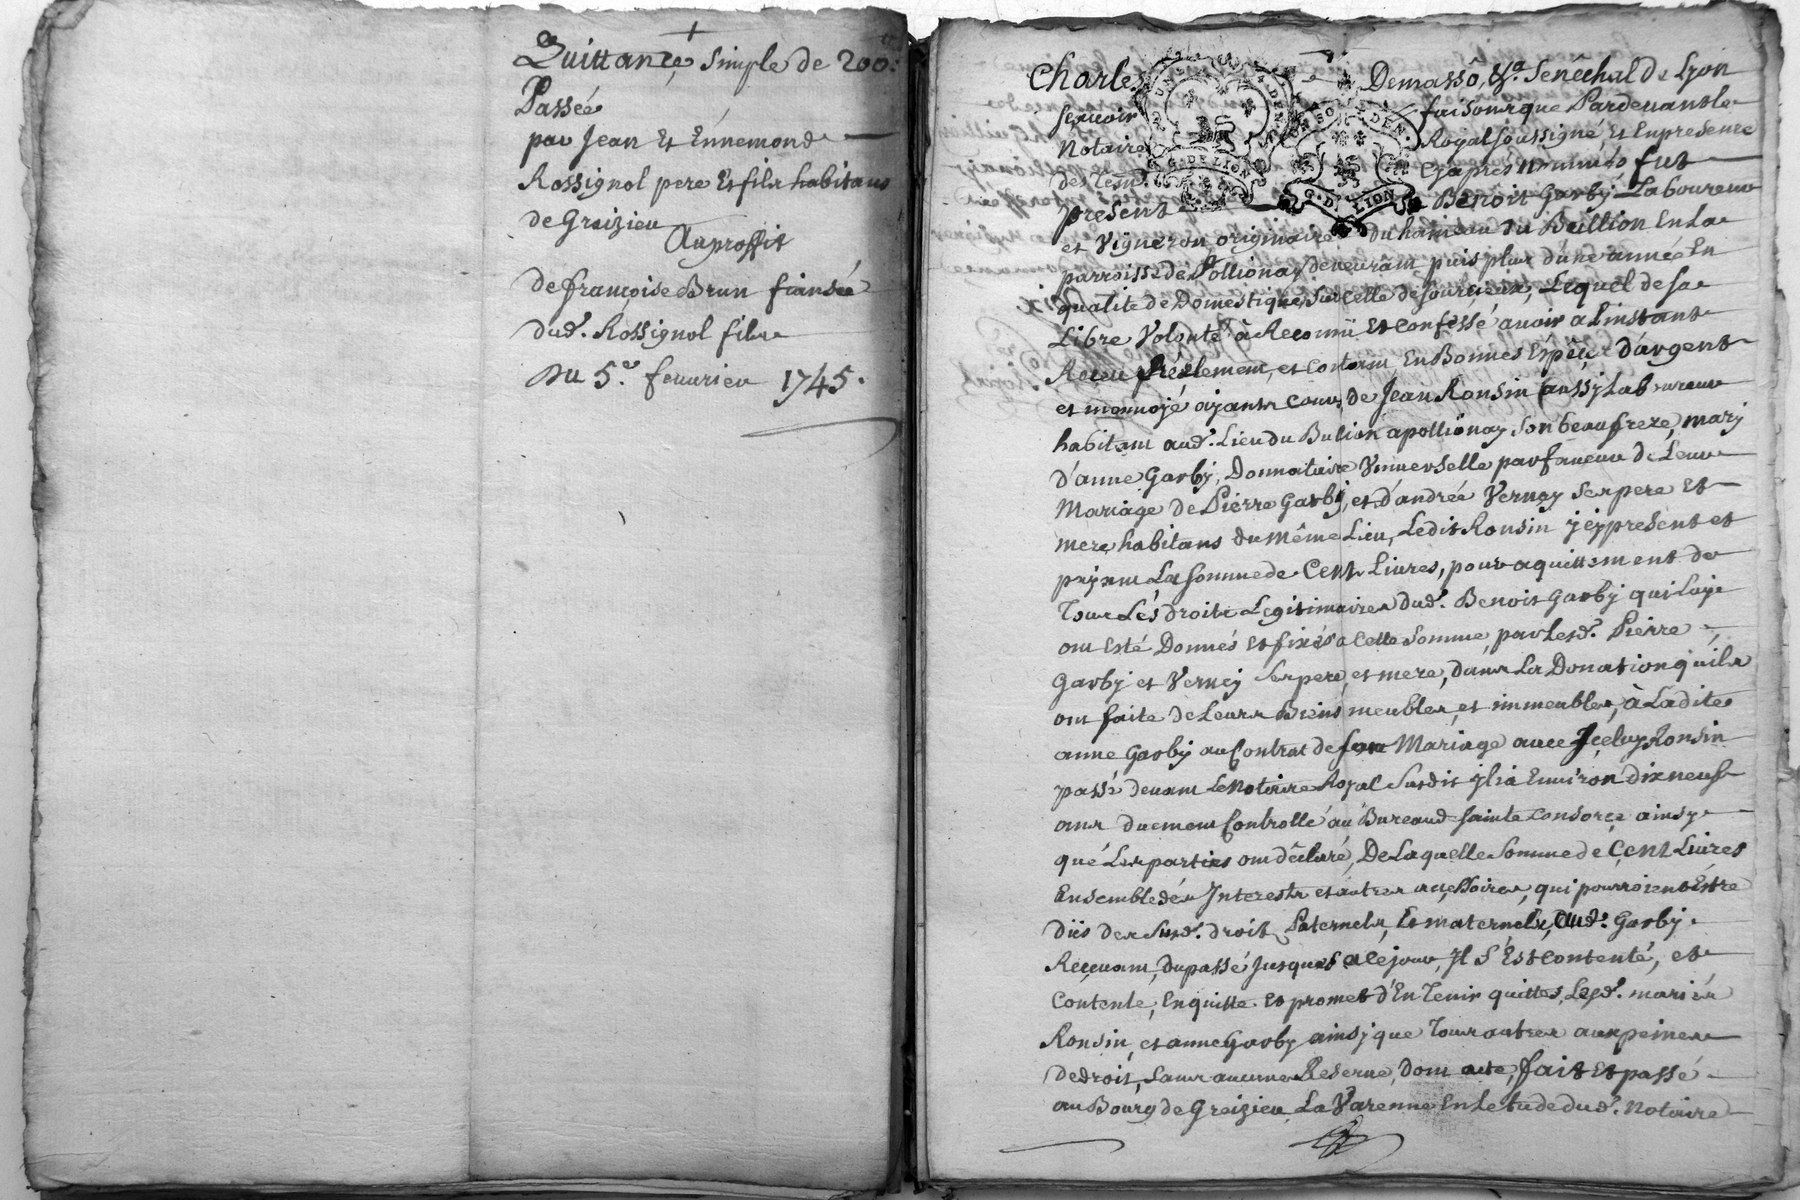 Quittance, simple de 200.
Passée
par Jean Et Ennemond
Rossignol pere Et fils habitans
de Greizieu
Au proffit
de françoise Brun fiansée
dud. Rossignol fils
Du 5.e feuurier 1745.
Charle Demasso, &a. Senéchal de Lyon
scauoir faisons que Pardeuant le
Notaire Royal soussigné, et Enpresence
des tesm. Cy apres nommés fut
present Benoit Garby Laboureur
et Vigneron originaire du hameau du Bullion En la
parroisse de Pollionay demeurant puis plus d'une année En
qualité de Domestique, sur celle de Sourcieux, Lequel de sa
Libre Volonté à Reconnu Et confessé auoir a L'instant
Receu Réelement, et Contant En Bonnes Espéces D'argent
et monnoyé ayant cours, de Jean Ronsin aussy Laboureur
habitant aud. Lieu du Bulion apollionay son beaufrere, mary
d'anne Garby, Donnataire Vniuerselle par faueur de Leur
Mariage de Pierre Garby, et d'andrée Verney Ses pere Et
mere habitans du même Lieu, Ledit Ronsin jcy present et
payant La somme de Cent Liures, pour aquittement de
Tous Les droits Legitimaires Dud. Benoit Garby qui Luy
ont Esté Donnés et fixés a Cette somme, par Lesd. Pierre
Garby et Verney Ses pere, et mere, dans La Donation qu'ils
ont faite de Leurs Biens meubles, et immeubles, à Ladite
anne Garby au Contrat de son Mariage auec Jceluy Ronsin
passé deuant Le Notaire Royal Susdit jl i a Enuiron dix neuf
ans duement Controllé au Bureau de sainte Consorce ainsy
que Les parties ont déclaré, De Laquelle Somme de Cent Liures
Ensemble des Interests et autres accessoires, qui pourroient Estre
düs des susd. droits Paternels, Et maternels, Aud. Garby
Receuant, du passé jusques a ce jour, Jl S'Est contenté, et
Contente, En quitte Et promet d'En Tenir quittes, Lesd. mariés
Ronsin, et anne Garby ainsj que Tous autres aux peines
de droit, Sans aucune Reserue, Dont acte, fait Et passé
au Bourg de Greizieu La Varenne En Letude dud. Notaire